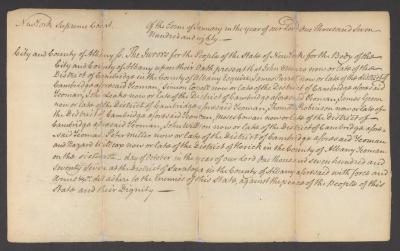 New York Supreme Court. Of the Term of January in the year of our Lord One Thousand Seven
Hundred and eighty.
City and County of Albany ss. The Jurors for the People of the State of New York for the Body of the
City and County of Albany upon their Oath present that John now or late of the
District of Cambridge in the County of Albany Esquire, James now or late of the district of
Cambridge aforesaid Yeoman, Simon now or late of the District of Cambridge aforesaid
Yeoman, John now or late of the District of Cambridge aforesaid Yeoman, James Green
now or late of the District of Cambridge aforesaid Yeoman, Thomas now or late of
the District of Cambridge aforesaid Yeoman, now or late of the district of
Cambridge aforesaid Yeoman, John now or late of the District of Cambridge afore
said Yeoman Peter Miller now or late of the District of Cambridge aforesaid Yeoman
and now or late of the District of in the County of Albany Yeoman
on the day of October in the year of our Lord One thousand seven hundred and
seventy seven at the District of Saratoga in the County of Albany aforesaid with force and
Arms &c. did adhere to the Enemies of this State, against the peace of the People of this
State and their Dignity